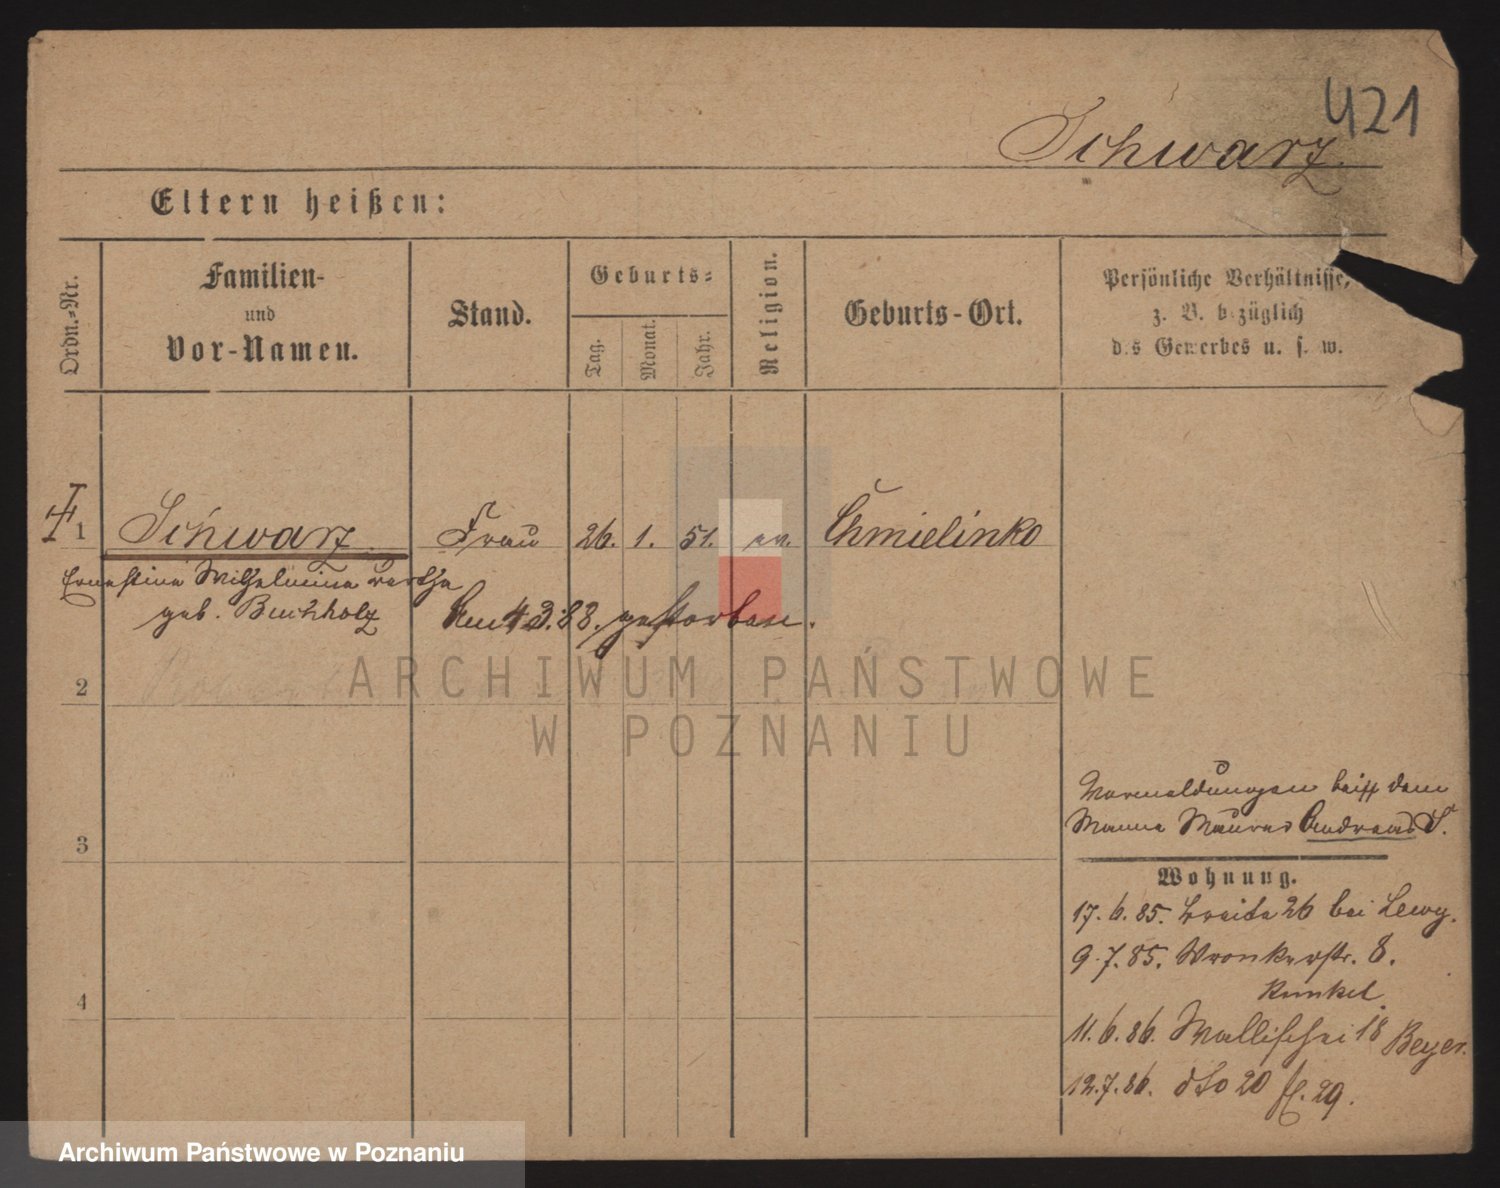 421
Schwarz.
Eltern heißen:
Ordn.-Nr.
Familien-
und
Vor-Namen.
Stand.
Geburts-
Tag.
Monat.
Jahr.
Religion.
Geburts-Ort.
Persönliche Verhältnisse,
z. B. bezüglich
des Gewerbes u. s. w.
1
Schwarz Frau 26. 1. 51. ev. Chmielinko
Ernestine Wilhelmine Bertha
geb. Buchholz
Am 4 3. 88. gestorben.
2
3
4
Vormeldungen dem
Manne Maurer Andreas S.
Wohnung.
17. 6. 85. Breite 26 bei Lewy.
9. 7. 85. Wronkerstr. 8.
Kunkel.
11. 6. 86. Wallischei 18 Beyer.
12. 7. 86. dto 20 29.
ARCHIWUM PAŃSTWOWE
W POZNANIU
Archiwum Państwowe w Poznaniu